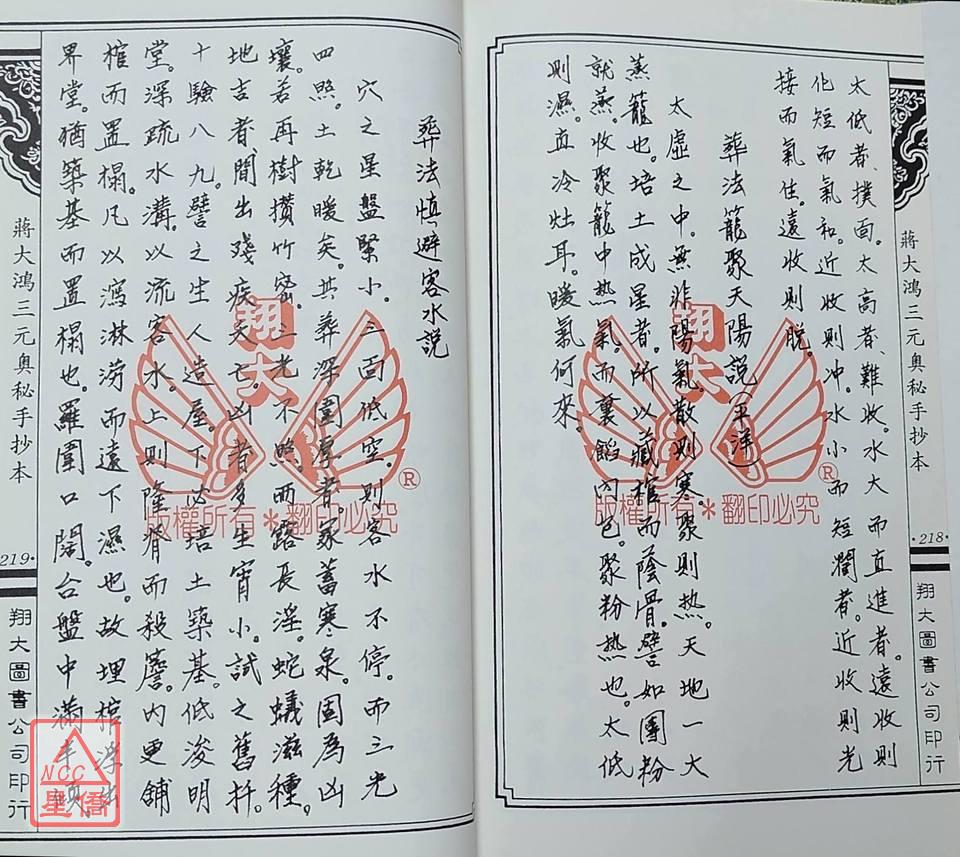 太低者、撲面。太高者、難收。水大而直進者。遠收則
化短而氣和。近收則冲。水小而短濶者。近收則光
接而氣住。遠收則脱。
葬法籠聚天陽說(平洋)
太虛之中。無非陽氣。散則寒。聚則热。天地一大
蒸籠也。培土成星者。所以藏棺而蔭骨。譬如團粉
就蒸。收聚籠中热氣。而裏餡闪包。聚粉热也。太低
则濕。直冷灶耳。暖氣何來。
蔣大鴻三元奥秘手抄本
·218·
翔大圖書公司印行
葬法慎避客水說
穴之星盤緊小。三面低空。則客水不停。而三光
四照。土乾暖矣。其葬深圍厚者。冢蓄寒泉。固為凶
壤。若再樹攢竹密。三光不照。而露長淫。蛇蟻滋種。
地吉者、間出殘疾夭亡。凶者多生宵小。試之舊扦。
十驗八九。譬之生人造屋。下必培土築基。低浚明
堂。深疏水溝。以流客水。上則隆脊而殺簷。内更舖
棺而置榻。凡以瀉淋澇而遠下濕也。故埋棺
界堂。猶築基而置榻也。羅圍口濶。台盤中滿
蔣大鴻三元奥秘手抄本
219·
翔大圖書公司印行
翔大
®
版權所有*翻印必究
翔大
®
版權所有*翻印必究
NCC
星僑